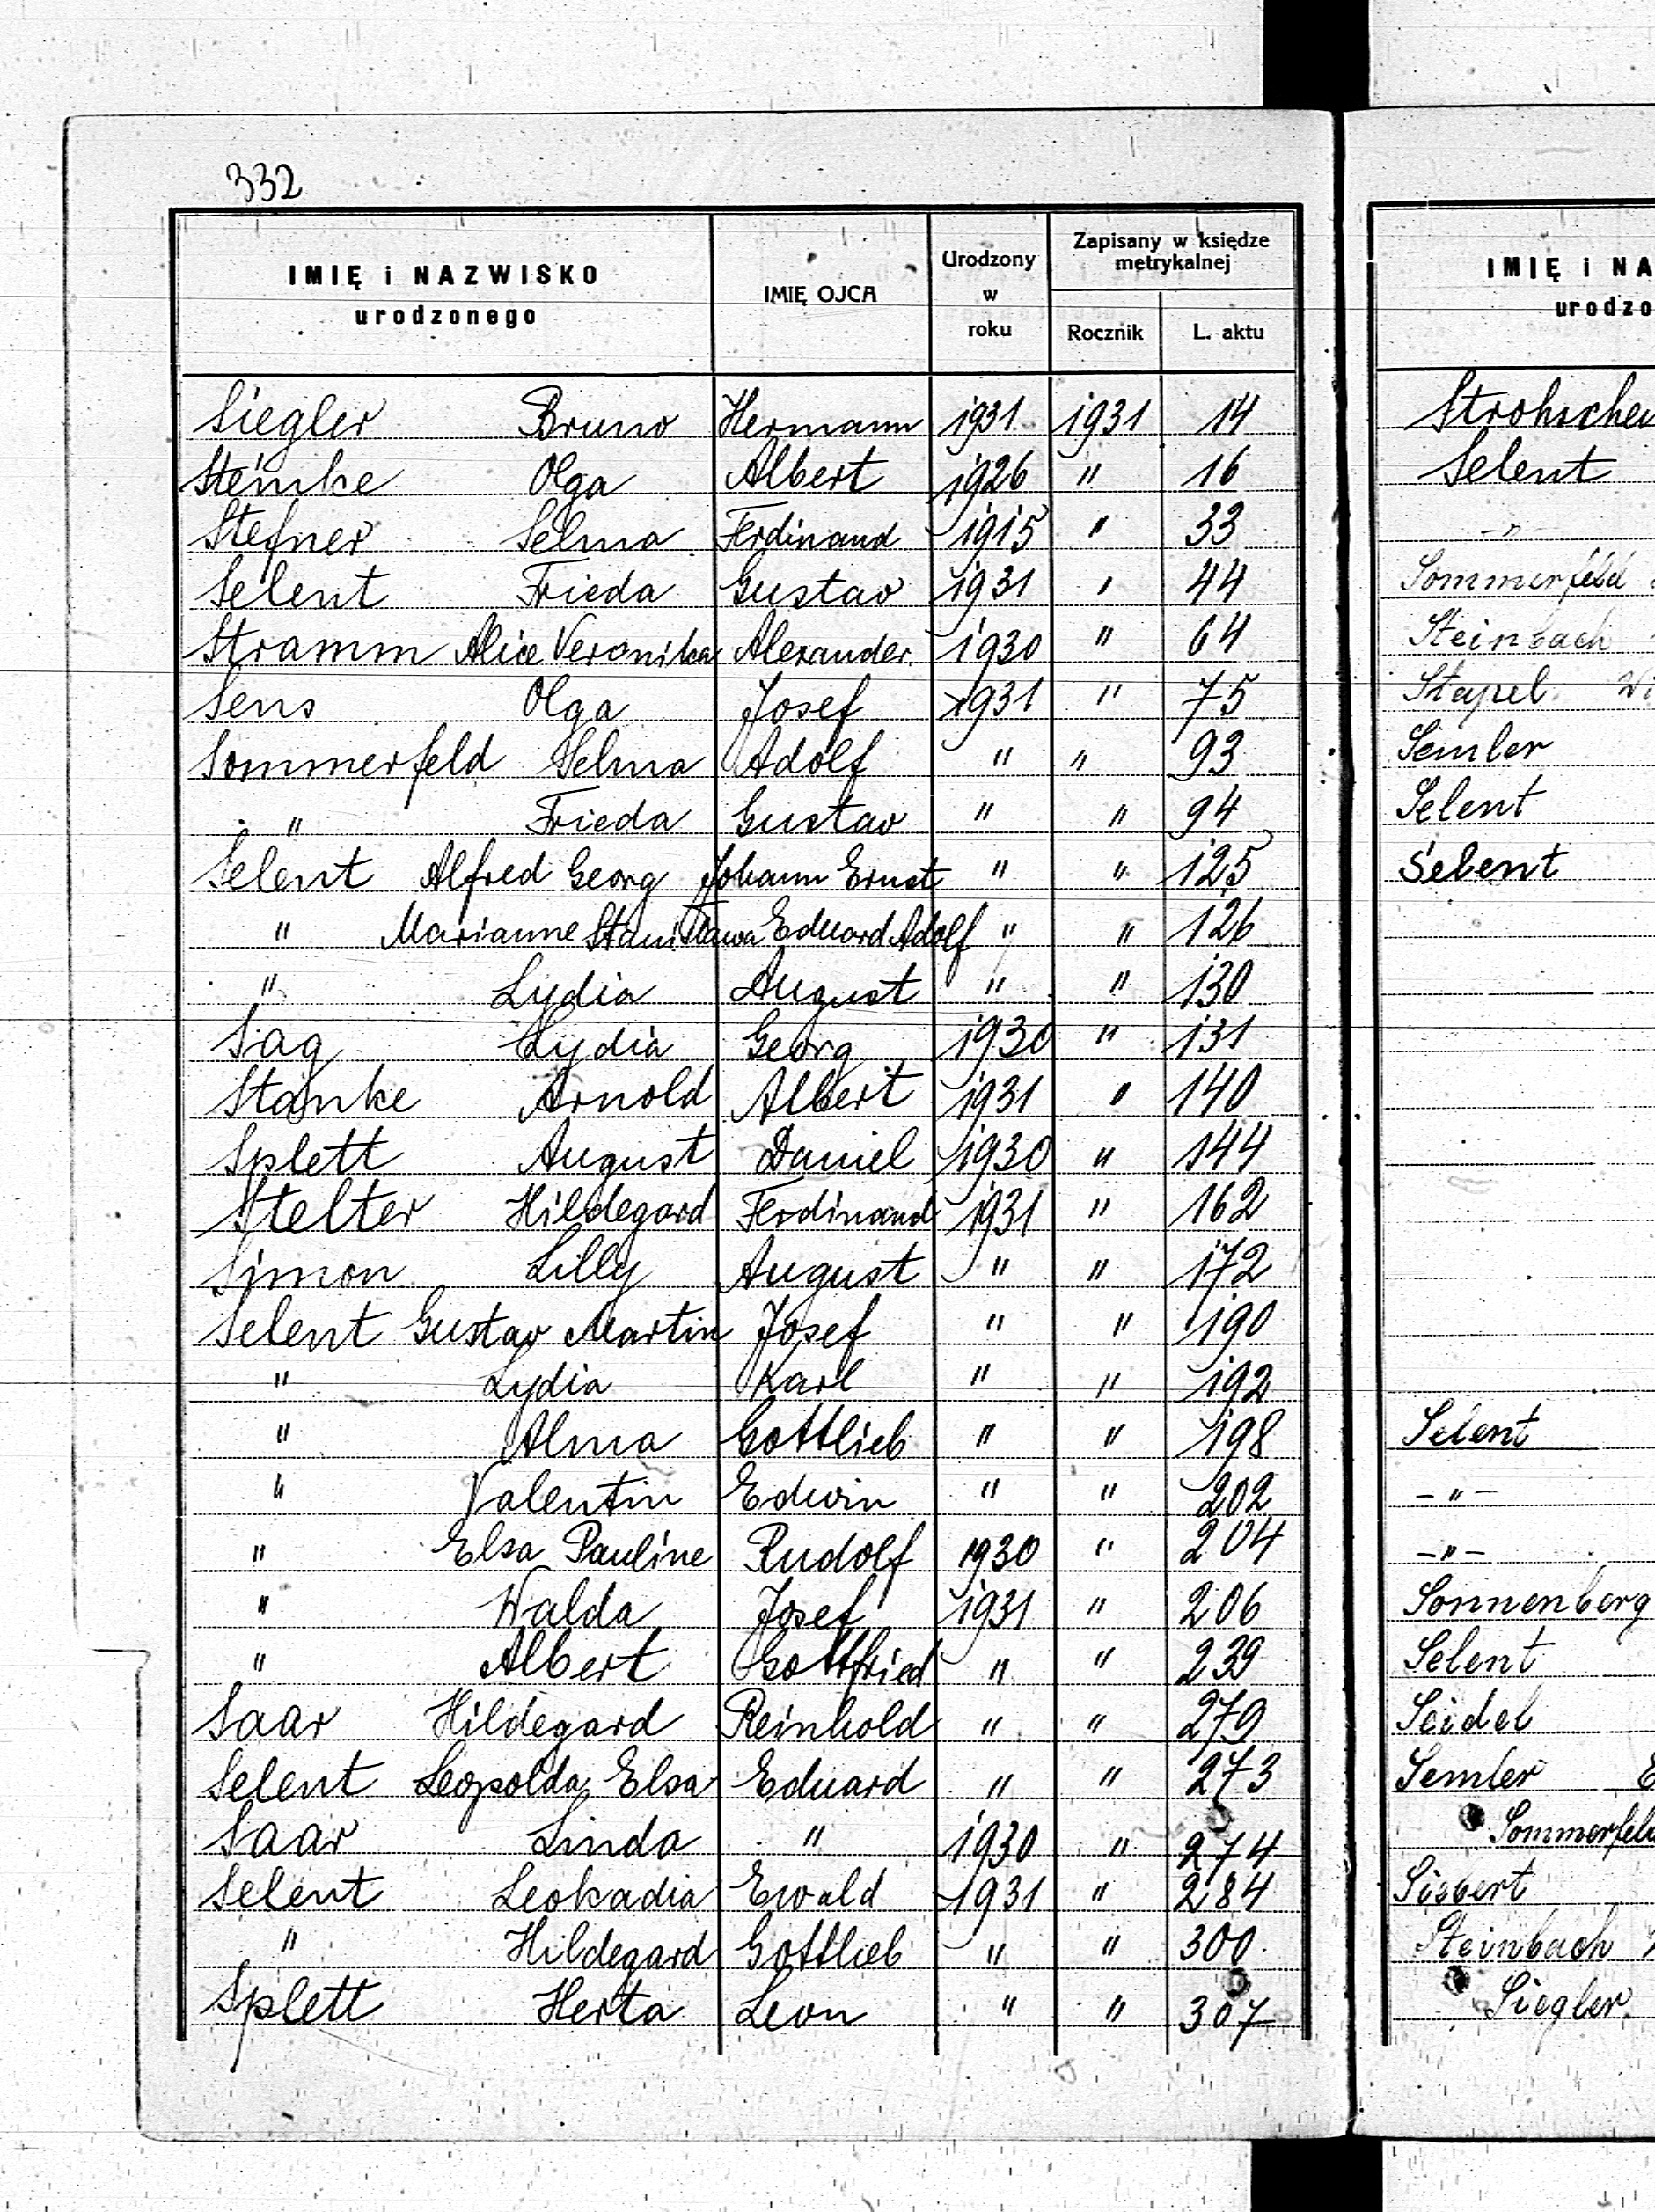 332
IMIĘ i NAZWISKO
urodzonego
IMIĘ OJCA
Urodzony
w
roku
Zapisany w księdze
metrykalnej
Rocznik
L. aktu
Siegler Bruno Hermann 1931 1931 14
Steinke Olga Albert 1926 " 16
Stefner Selma Ferdinand 1915 " 33
Selent Frieda Gustav 1931 " 44
Stramm Alice Veronika Alexander 1930 " 64
Sens Olga Josef 1931 " 75
Sommerfeld Selma Adolf " " 93
" Frieda Gustav " " 94
Selent Alfred Georg Johann Ernst " " 125
" Marianne Stanisława Eduard Adolf " " 126
" Lydia August " " 130
Sag Lydia Georg 1930 " 131
Stanke Arnold Albert 1931 " 140
Splett August Daniel 1930 " 144
Stelter Hildegard Ferdinand 1931 " 162
Simon Lilly August " " 172
Selent Gustav Martin Josef " " 190
" Lydia Karl " " 192
" Alma Gottlieb " " 198
" Valentin Edwin " " 202
" Elsa Pauline Rudolf 1930 " 204
" Walda Josef 1931 " 206
" Albert Gottfried " " 239
Saar Hildegard Reinhold " " 279
Selent Leopolda Elsa Eduard " " 273
Saar Linda " 1930 " 274
Selent Leokadia Ewald 1931 " 284
" Hildegard Gottlieb " " 300
Splett Herta Leon " " 307
IMIĘ i NA
urodzo
Strohschei
Selent
-"-
Sommerfeld
Steinbach
Stapel Wi
Semler
Selent
Selent
Selent
-"-
-"-
Sonnenberg
Selent
Seidel
Semler E
Sommerfeld
Siebert
Steinbach
Siegler